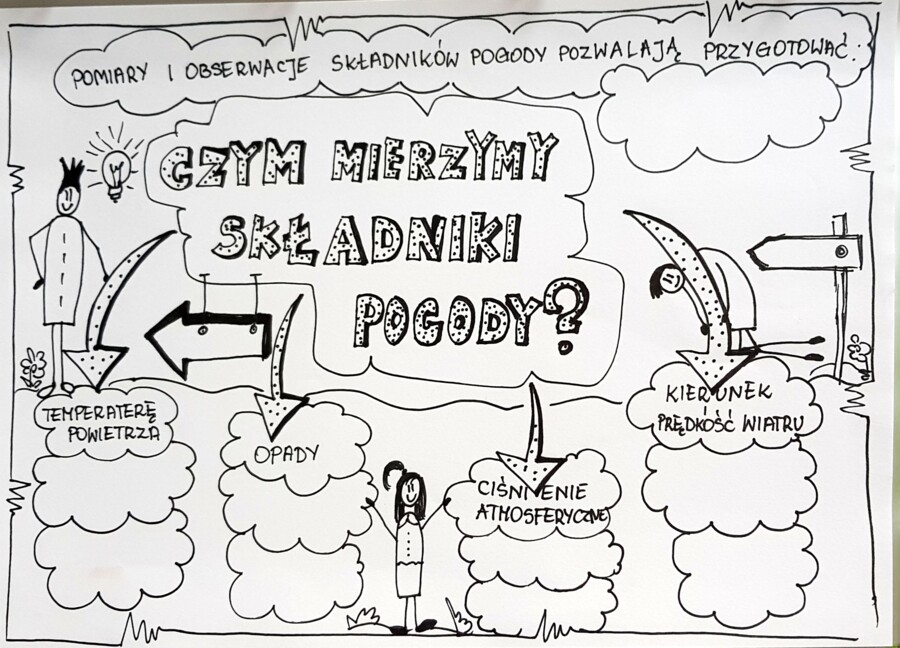 POMIARY I OBSERWACJE SKŁADNIKÓW POGODY POZWALAJĄ PRZYGOTOWAĆ:
CZYM MIERZYMY
SKŁADNIKI
POGODY?
TEMPERATERĘ
POWIETRZA
OPADY
CIŚNIENIE
ATMOSFERYCZNE
KIERUNEK
I
PRĘDKOŚĆ WIATRU